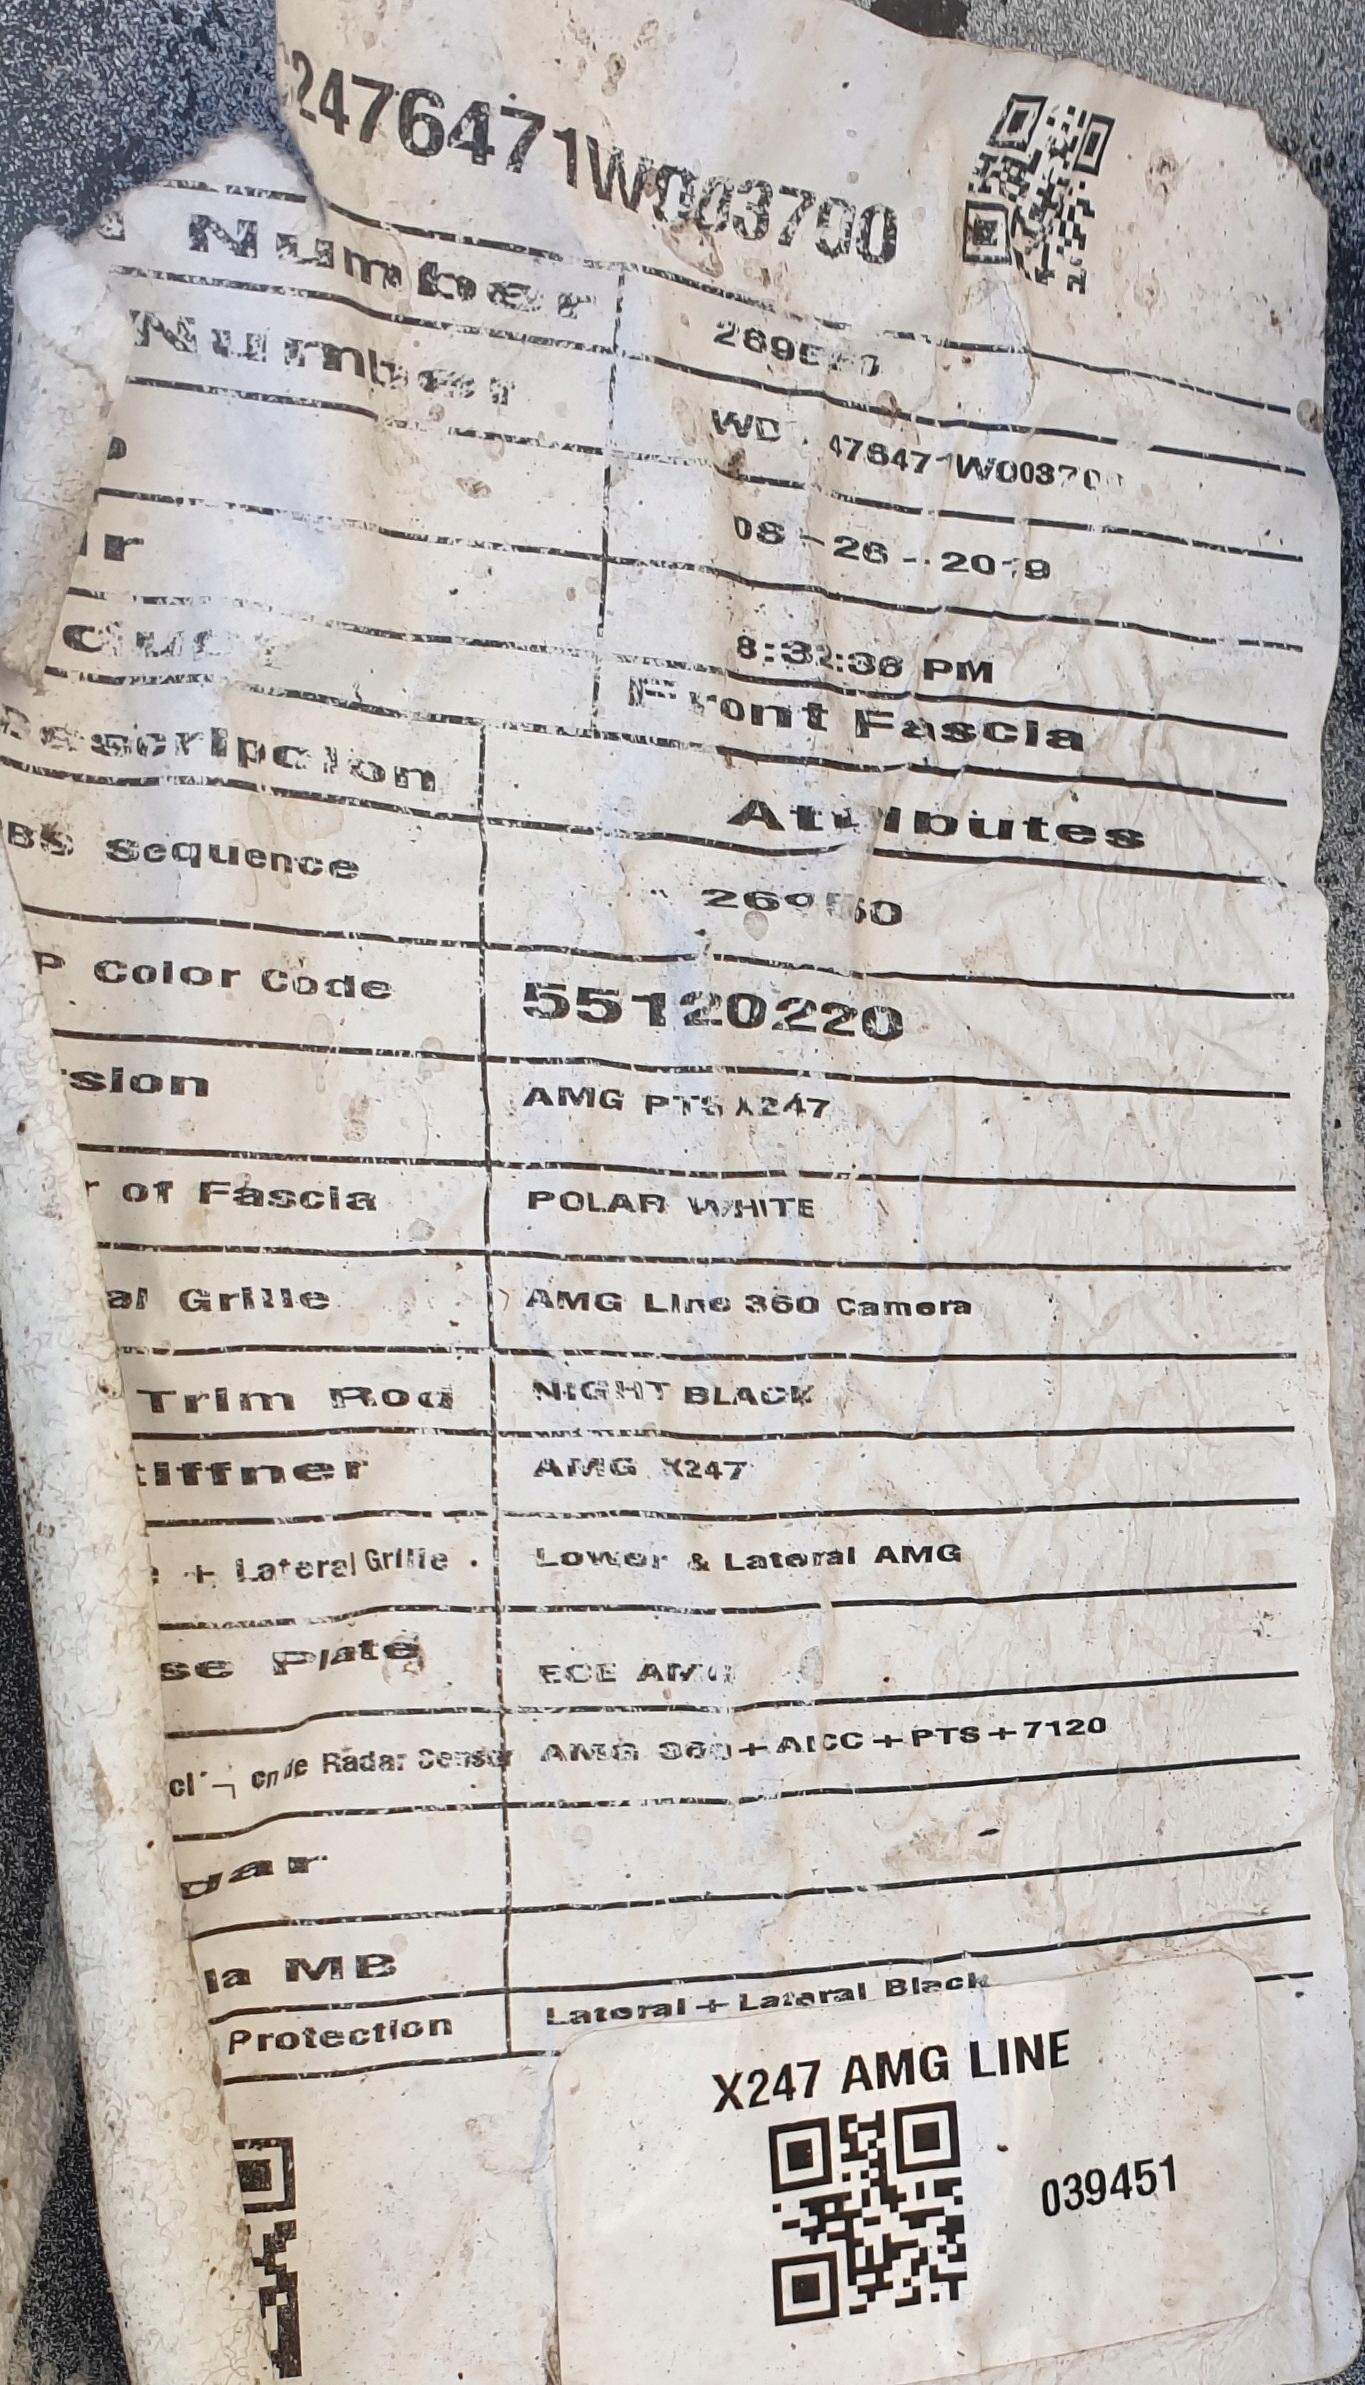 2476471W003700
Number
Number WD 476471W00370
08-26-2019
8:32:36 PM
Front Fascia
Descripcion Attributes
Sequence
Color Code 55120220
sion AMG PTS X247
r of Fascia POLAR WHITE
al Grille AMG Line 360 Camera
Trim Rod NIGHT BLACK
tiffner AMG X247
+ Lateral Grille Lower & Lateral AMG
se Plate ECE AMG
Radar Sensor AMG 360+AICC+PTS+7120
dar
la MB
Protection Lateral + Lateral Black
X247 AMG LINE
039451